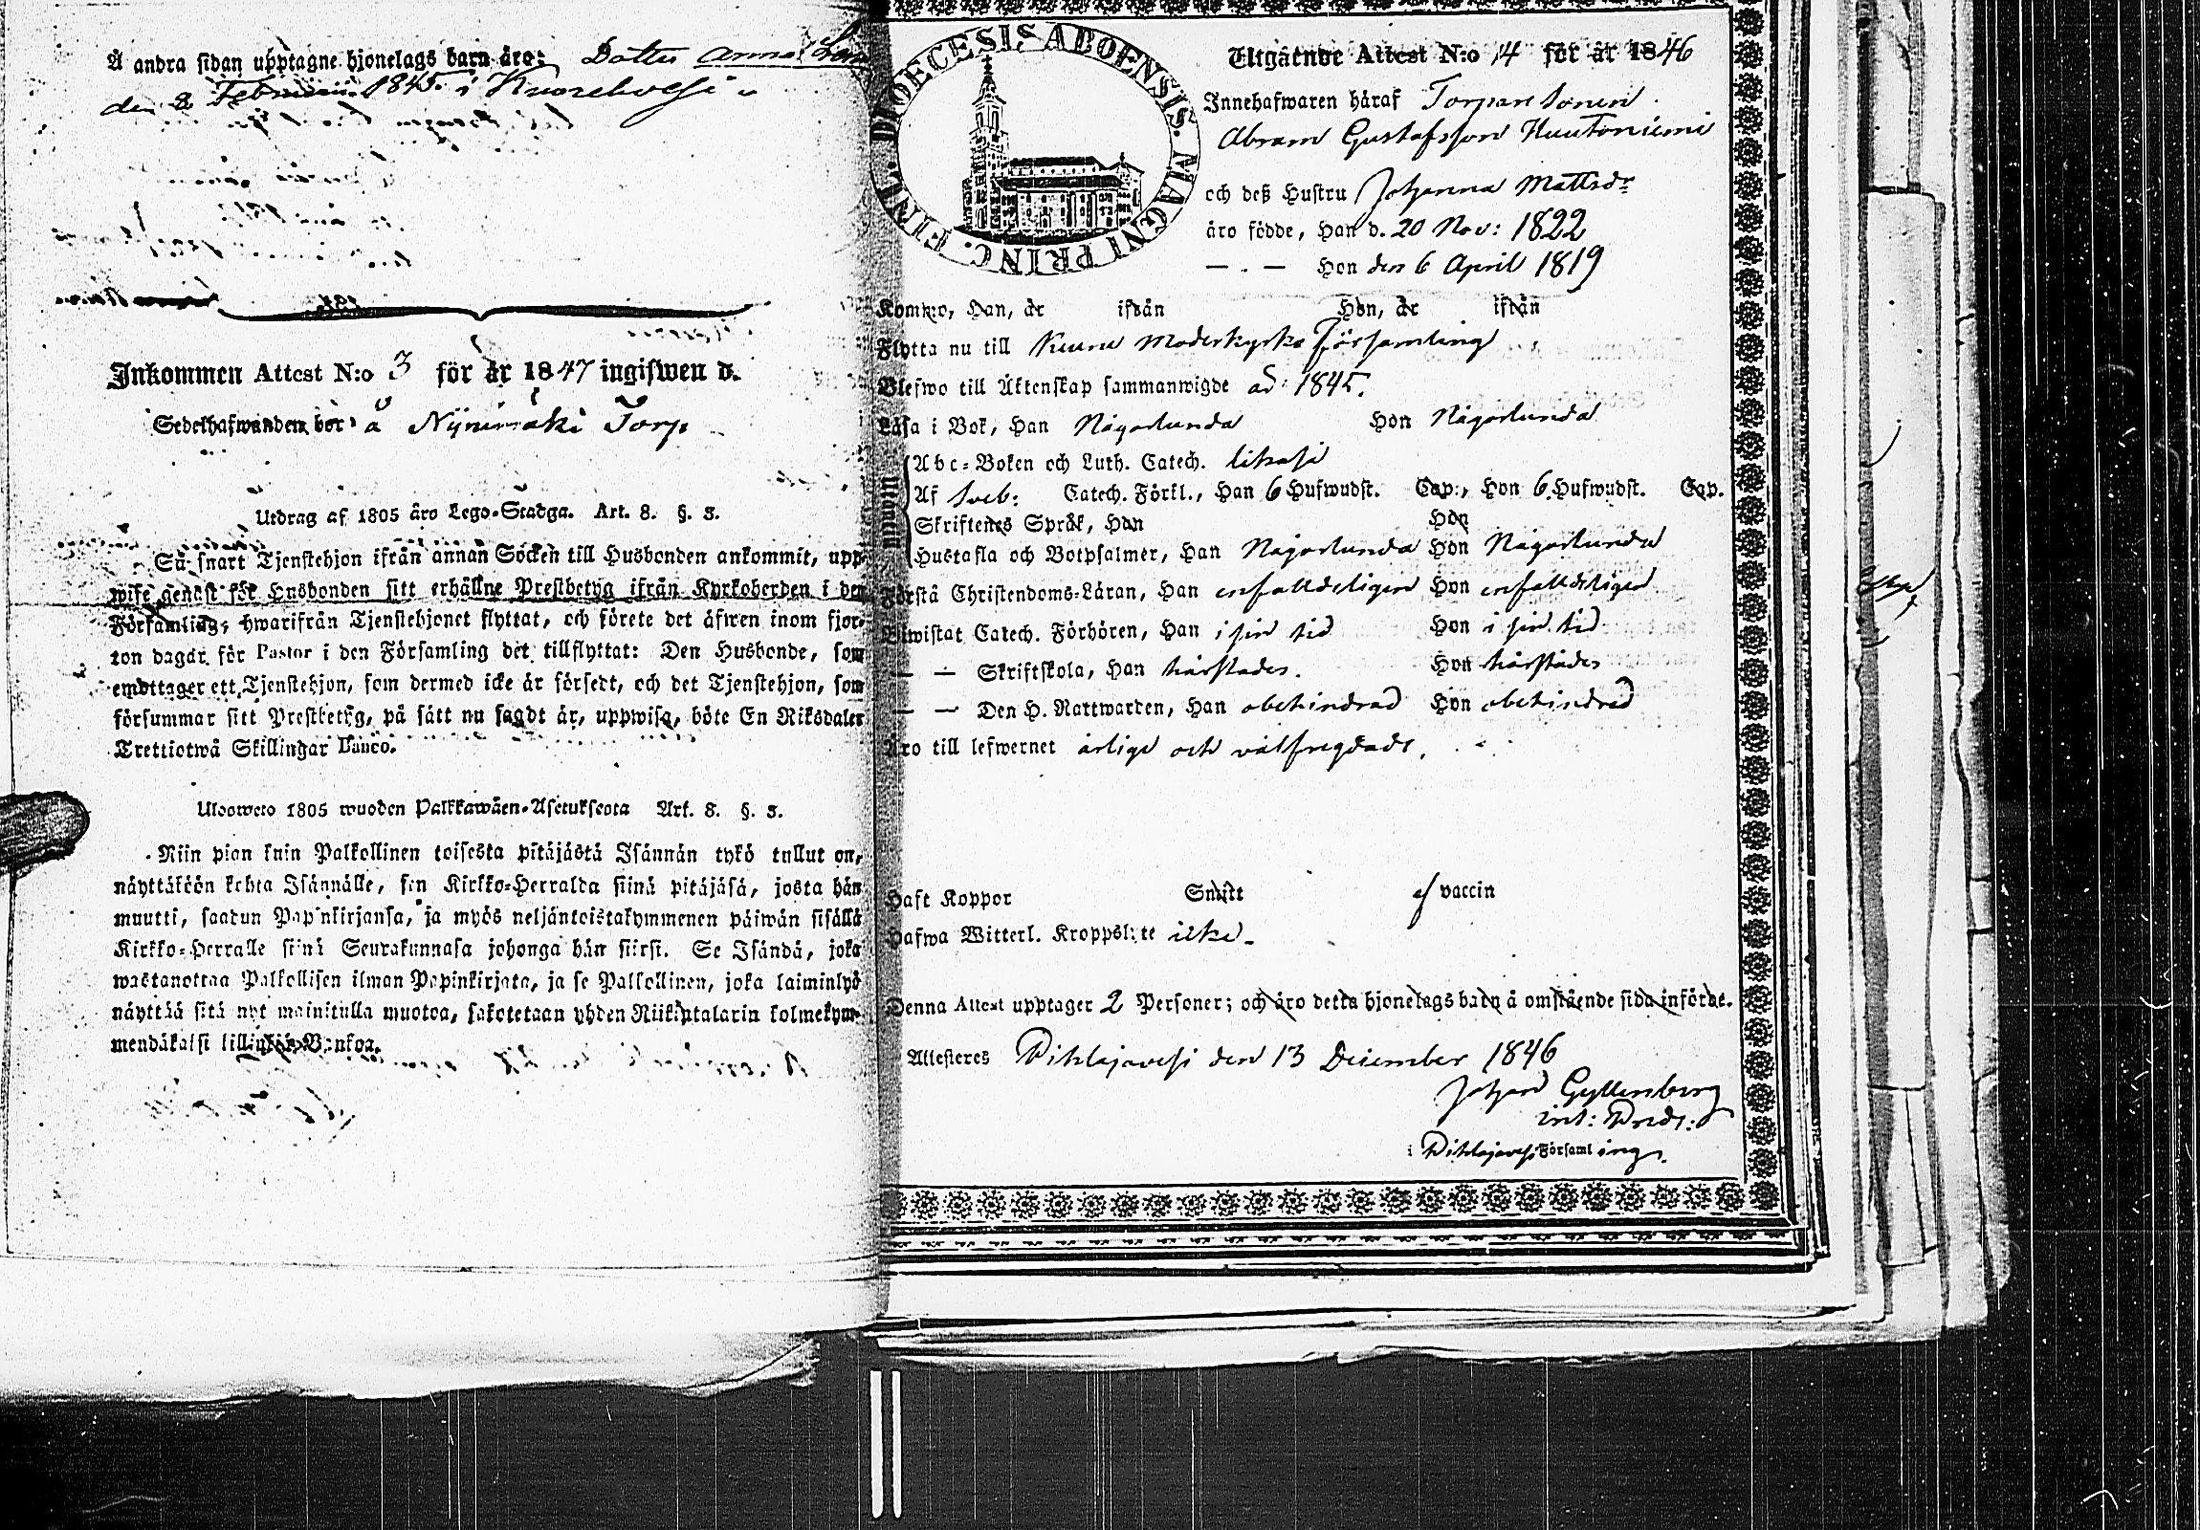 Å andra sidan upptagne hjonelags barn äro: Dotter Anna
den 2 Februarii 1845 i
Inkommen Attest N:o 3 för år 1847 ingifwen d.
Sedelhafwanden bor å Nynimäki Torp
Utdrag af 1805 åro Lego-Stadga. Art. 8. §. 3.
Så snart Tjenstehjon ifrån annan Socken till Husbonden ankommit, upp-
wise genast för Husbonden sitt erhållne Prestbetyg ifrån Kyrkoherden i den
Församling, hwarifrån Tjenstehjonet flyttat, och förete det äfwen inom fjor-
ton dagar för Pastor i den Församling det tillflyttat: Den Husbonde, som
emottager ett Tjenstehjon, som dermed icke är försedt, och det Tjenstehjon, som
försummar sitt Prestbetyg, på sätt nu sagdt är, uppwisa, böte En Riksdaler
Trettiotwå Skillingar Banco.
Ulosweto 1805 wuoden Palkkawäen-Asetuksesta Art. 8. §. 3.
Niin pian kuin Palkollinen toisesta pitäjästä Isännän tykö tullut on,
näyttäköön kohta Isännälle, sen Kirkko-Herralda siinä pitäjäsä, josta hän
muutti, saadun Papinkirjansa, ja myös neljäntoistakymmenen päiwän sisällä
Kirkko-Herralle siinä Seurakunnasa johonga hän siirsi. Se Isändä, joka
wastanottaa Palkollisen ilman Papinkirjata, ja se Palkollinen, joka laiminlyö
näyttää sitä nyt mainitulla muotoa, sakotetaan yhden Riikintalarin kolmekym-
mendäkaksi killingiä Bankoa.
DIOECESIS ABOENSIS. MAGNI PRINC. FINL.
Utgående Attest N:o 14 för år 1846
Innehafwaren häraf Torpare Sonen
Abram Gustafsson Huutoniemi
och deß Hustru Johanna Mattsdr
äro födde, Han d. 20 Nov: 1822
— . — Hon den 6 April 1819
Kommo, Han, år ifrån Hon, år ifrån
Flytta nu till Keuru Moderkyrko Församling
Blefwo till Äktenskap sammanwigde ad: 1845.
Läsa i Bok, Han Någorlunda Hon Någorlunda
Abc-Boken och Luth. Catech. likaså
Af Sveb: Catech. Förkl., Han 6 Hufwudst. Cap., Hon 6 Hufwudst. Cap.
Skriftenes Språk, Han Hon
Hustafla och Botpsalmer, Han Någorlunda Hon Någorlunda
Förstå Christendoms-Läran, Han enfaldeligen Hon enfaldeligen
Biwistat Catech. Förhören, Han i sin tid Hon i sin tid
— — Skriftskola, Han härstädes. Hon härstädes
— — Den H. Nattwarden, Han obehindrad Hon obehindrad
Äro till lefwernet ärlige och välfregdade.
Haft Koppor Smitt af vaccin
Hafwa Witterl. Kroppslyte icke.
Denna Attest upptager 2 Personer; och äro detta hjonelags barn å omstående sida införde.
Attesteres Pihlajavesi den 13 December 1846
Johan Gyllenberg
int: Pred:
i Pihlajavesi Församling.